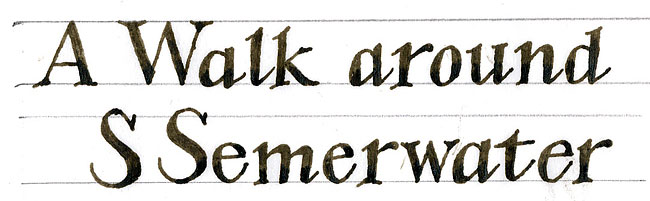 A Walk around
S Semerwater